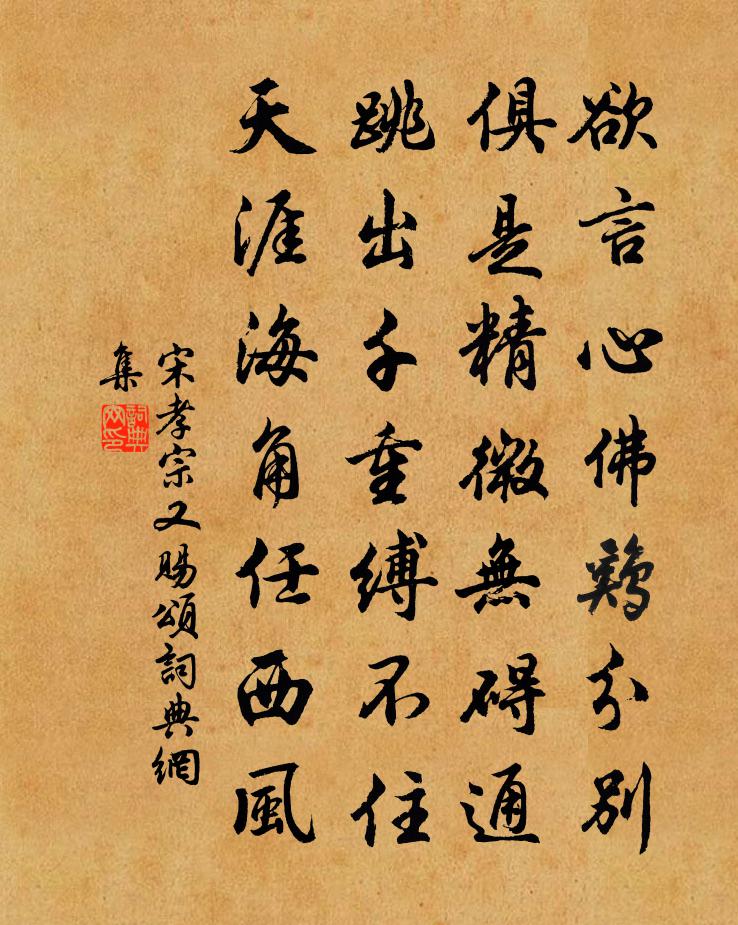 欲言心佛難分別
俱是精微無碍通
跳出千重縛不住
天涯海角任西風
宋孝宗又賜頌詞典網
集
詞典
网印